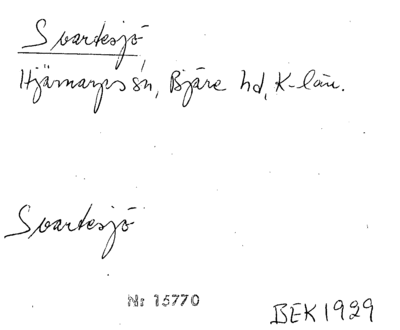 Svartesjö
Hjärnarps sn, Bjäre hd, K-län.
Svartesjö
Nr 15770
BEK 1929